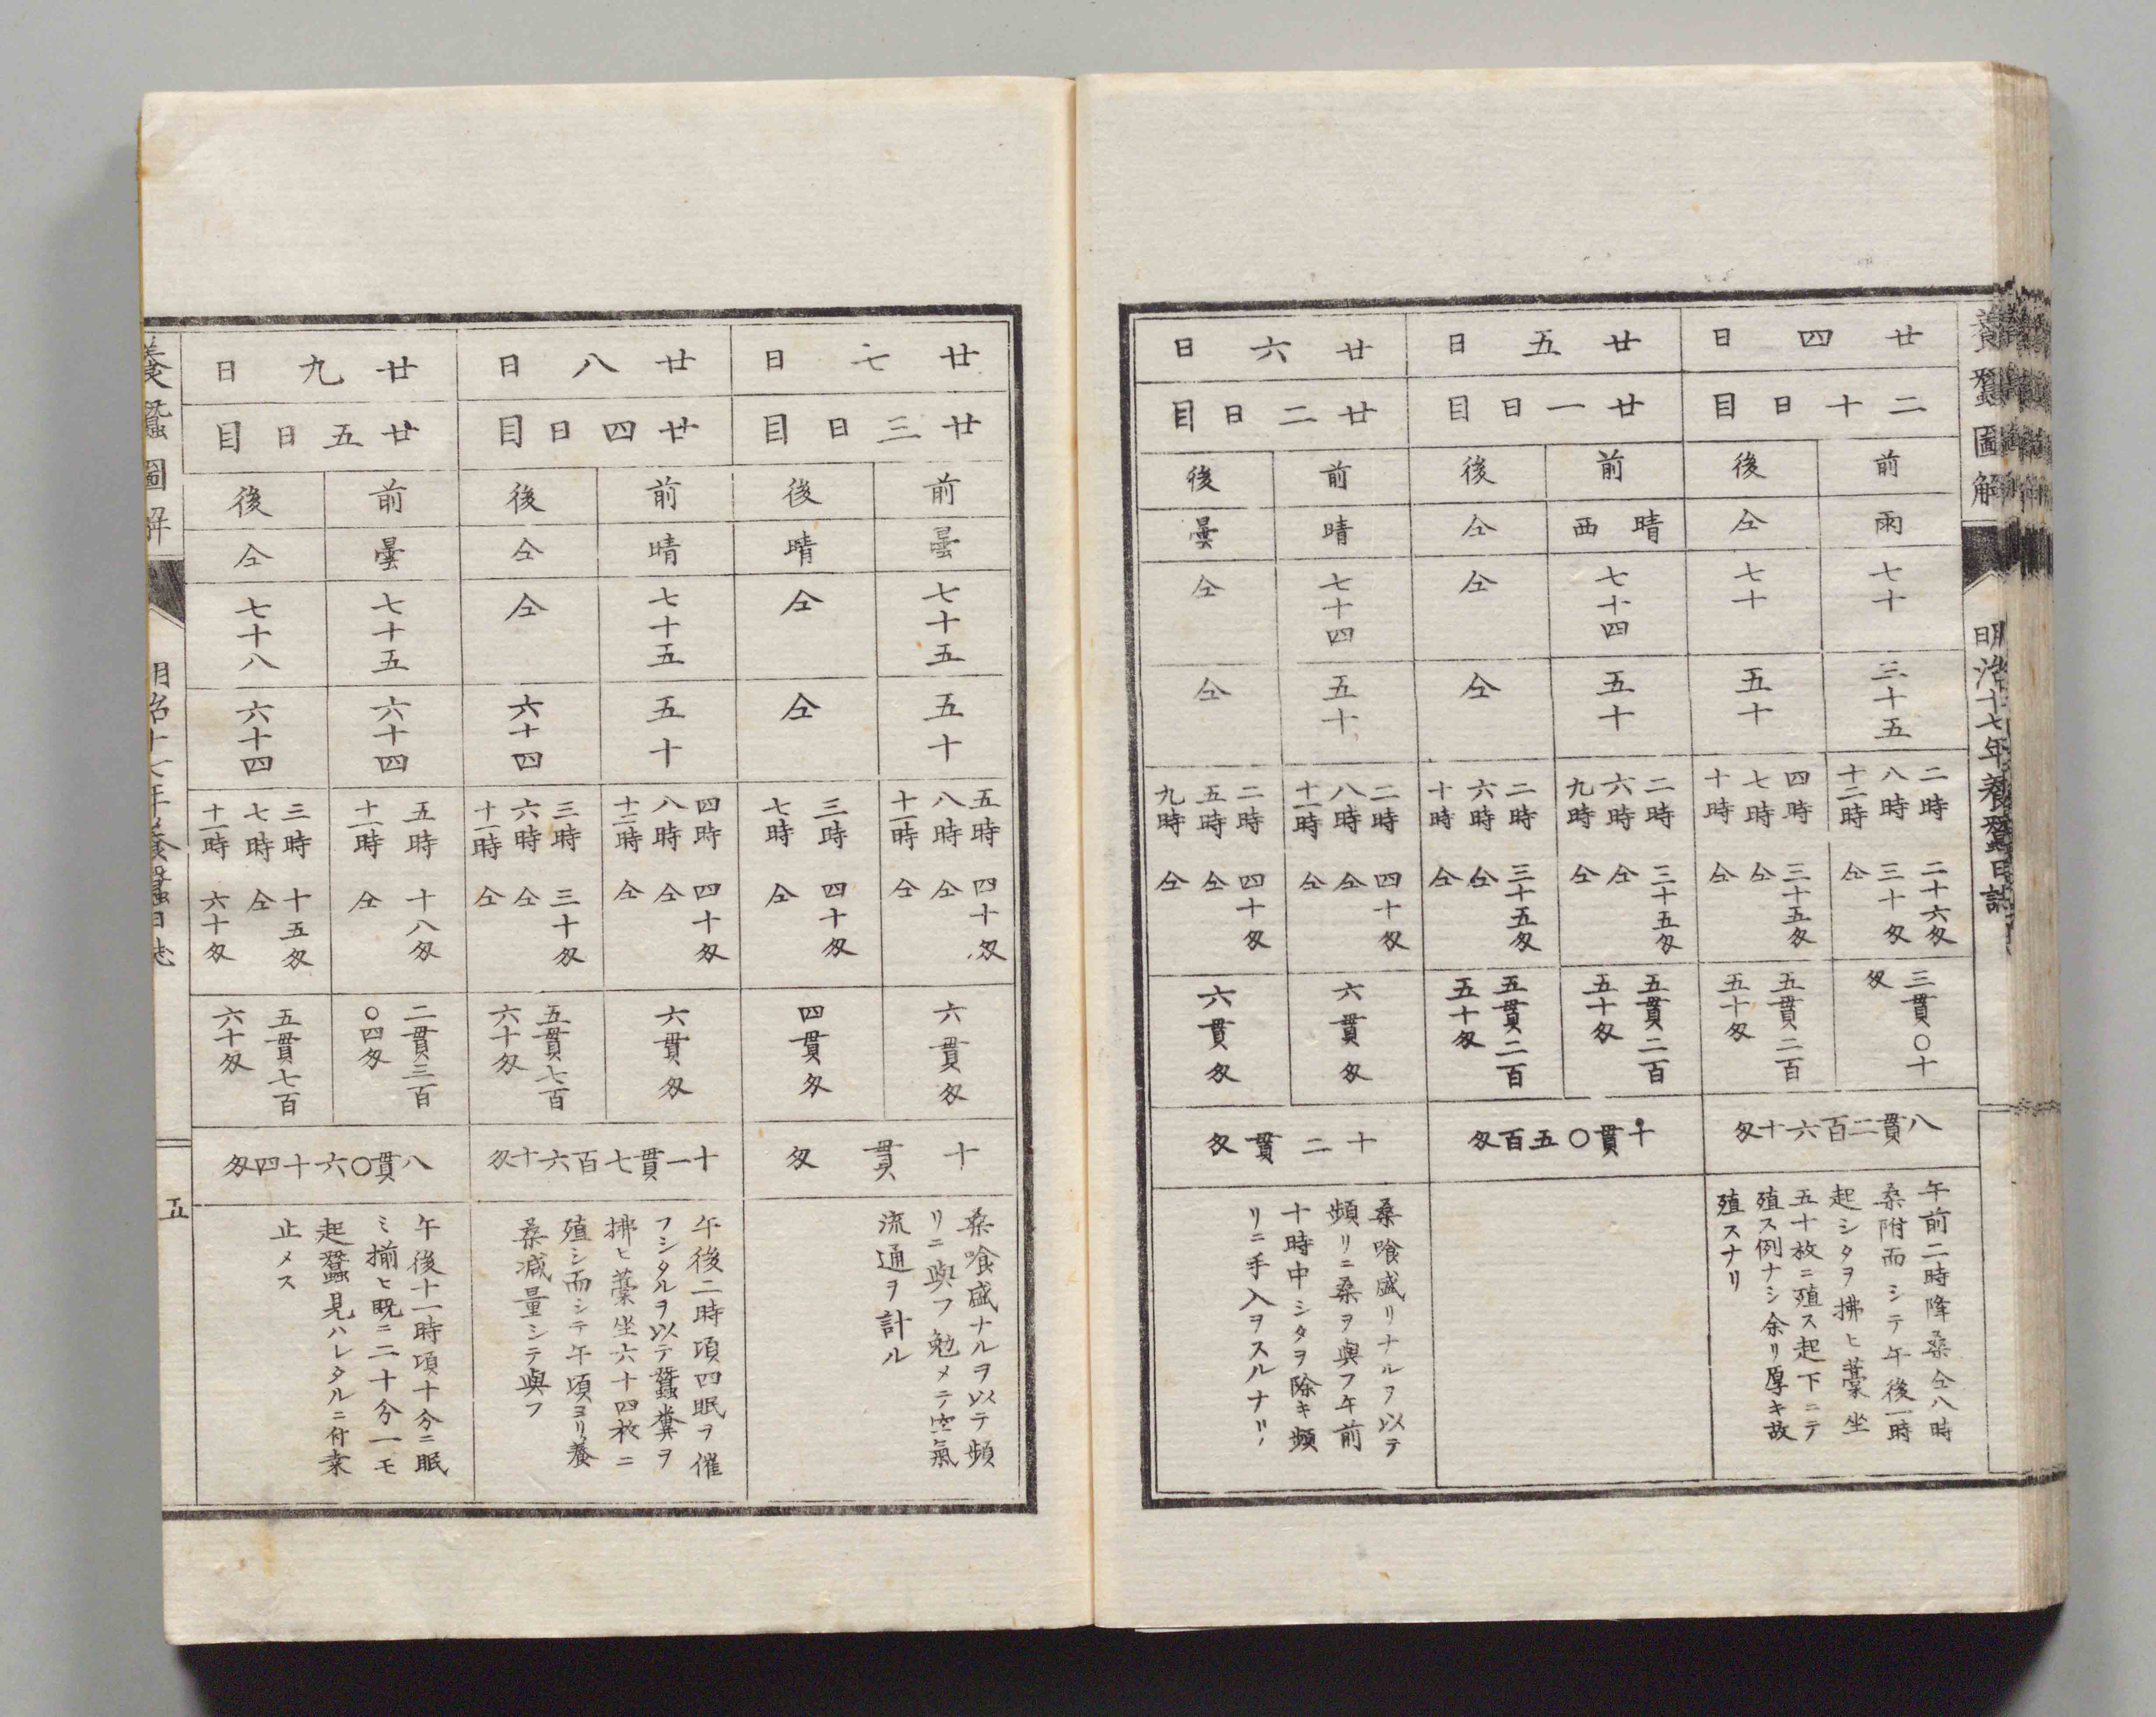 養蠶圖解
明治十七年養蠶日誌
廿四日
二十日目
前
雨
七十
三十五
二時 二十六匁
八時 三十匁
十二時 仝
三貫〇十
匁
後
仝
七十
五十
四時 三十五匁
七時 仝
十時 仝
五貫二百
五十匁
八貫二百六十匁
午前二時降桑仝八時
桑附而シテ午後一時
起シタヲ拂ヒ藁坐
五十枚ニ殖ス起下ニテ
殖ス例ナシ余リ厚キ故
殖スナリ
廿五日
廿一日目
前
晴
西
七十四
五十
二時 三十五匁
六時 仝
九時 仝
五貫二百
五十匁
後
仝
仝
仝
二時 三十五匁
六時 仝
十時 仝
五貫二百
五十匁
十貫〇五百匁
廿六日
廿二日目
前
晴
七十四
五十
二時 四十匁
八時 仝
十一時 仝
六貫匁
後
曇
仝
仝
二時 四十匁
五時 仝
九時 仝
六貫匁
十二貫匁
桑喰盛リナルヲ以テ
頻リニ桑ヲ與フ午前
十時中シタヲ除キ頻
リニ手入ヲスルナリ
廿七日
廿三日目
前
曇
七十五
五十
五時 四十匁
八時 仝
十一時 仝
六貫匁
後
晴
仝
仝
三時 四十匁
七時 仝
四貫匁
十貫匁
桑喰盛ナルヲ以テ頻
リニ與フ勉メテ空氣
流通ヲ計ル
廿八日
廿四日目
前
晴
七十五
五十
四時 四十匁
八時 仝
十二時 仝
六貫匁
後
仝
仝
六十四
三時 三十匁
六時 仝
十一時 仝
五貫七百
六十匁
十一貫七百六十匁
午後二時頃四眠ヲ催
フシタルヲ以テ蠶糞ヲ
拂ヒ藁坐六十四枚ニ
殖シ而シテ午頃ヨリ養
桑減量シテ與フ
廿九日
廿五日目
前
曇
七十五
六十四
五時 十八匁
十一時 仝
二貫三百
〇四匁
後
仝
七十八
六十四
三時 十五匁
七時 仝
十一時 六十匁
五貫七百
六十匁
八貫〇六十四匁
午後十一時頃十分ニ眠
ミ揃ヒ既ニ二十分一モ
起蠶見ハレタルニ付桑
止メス
養蠶圖解
明治十七年養蠶日誌
五